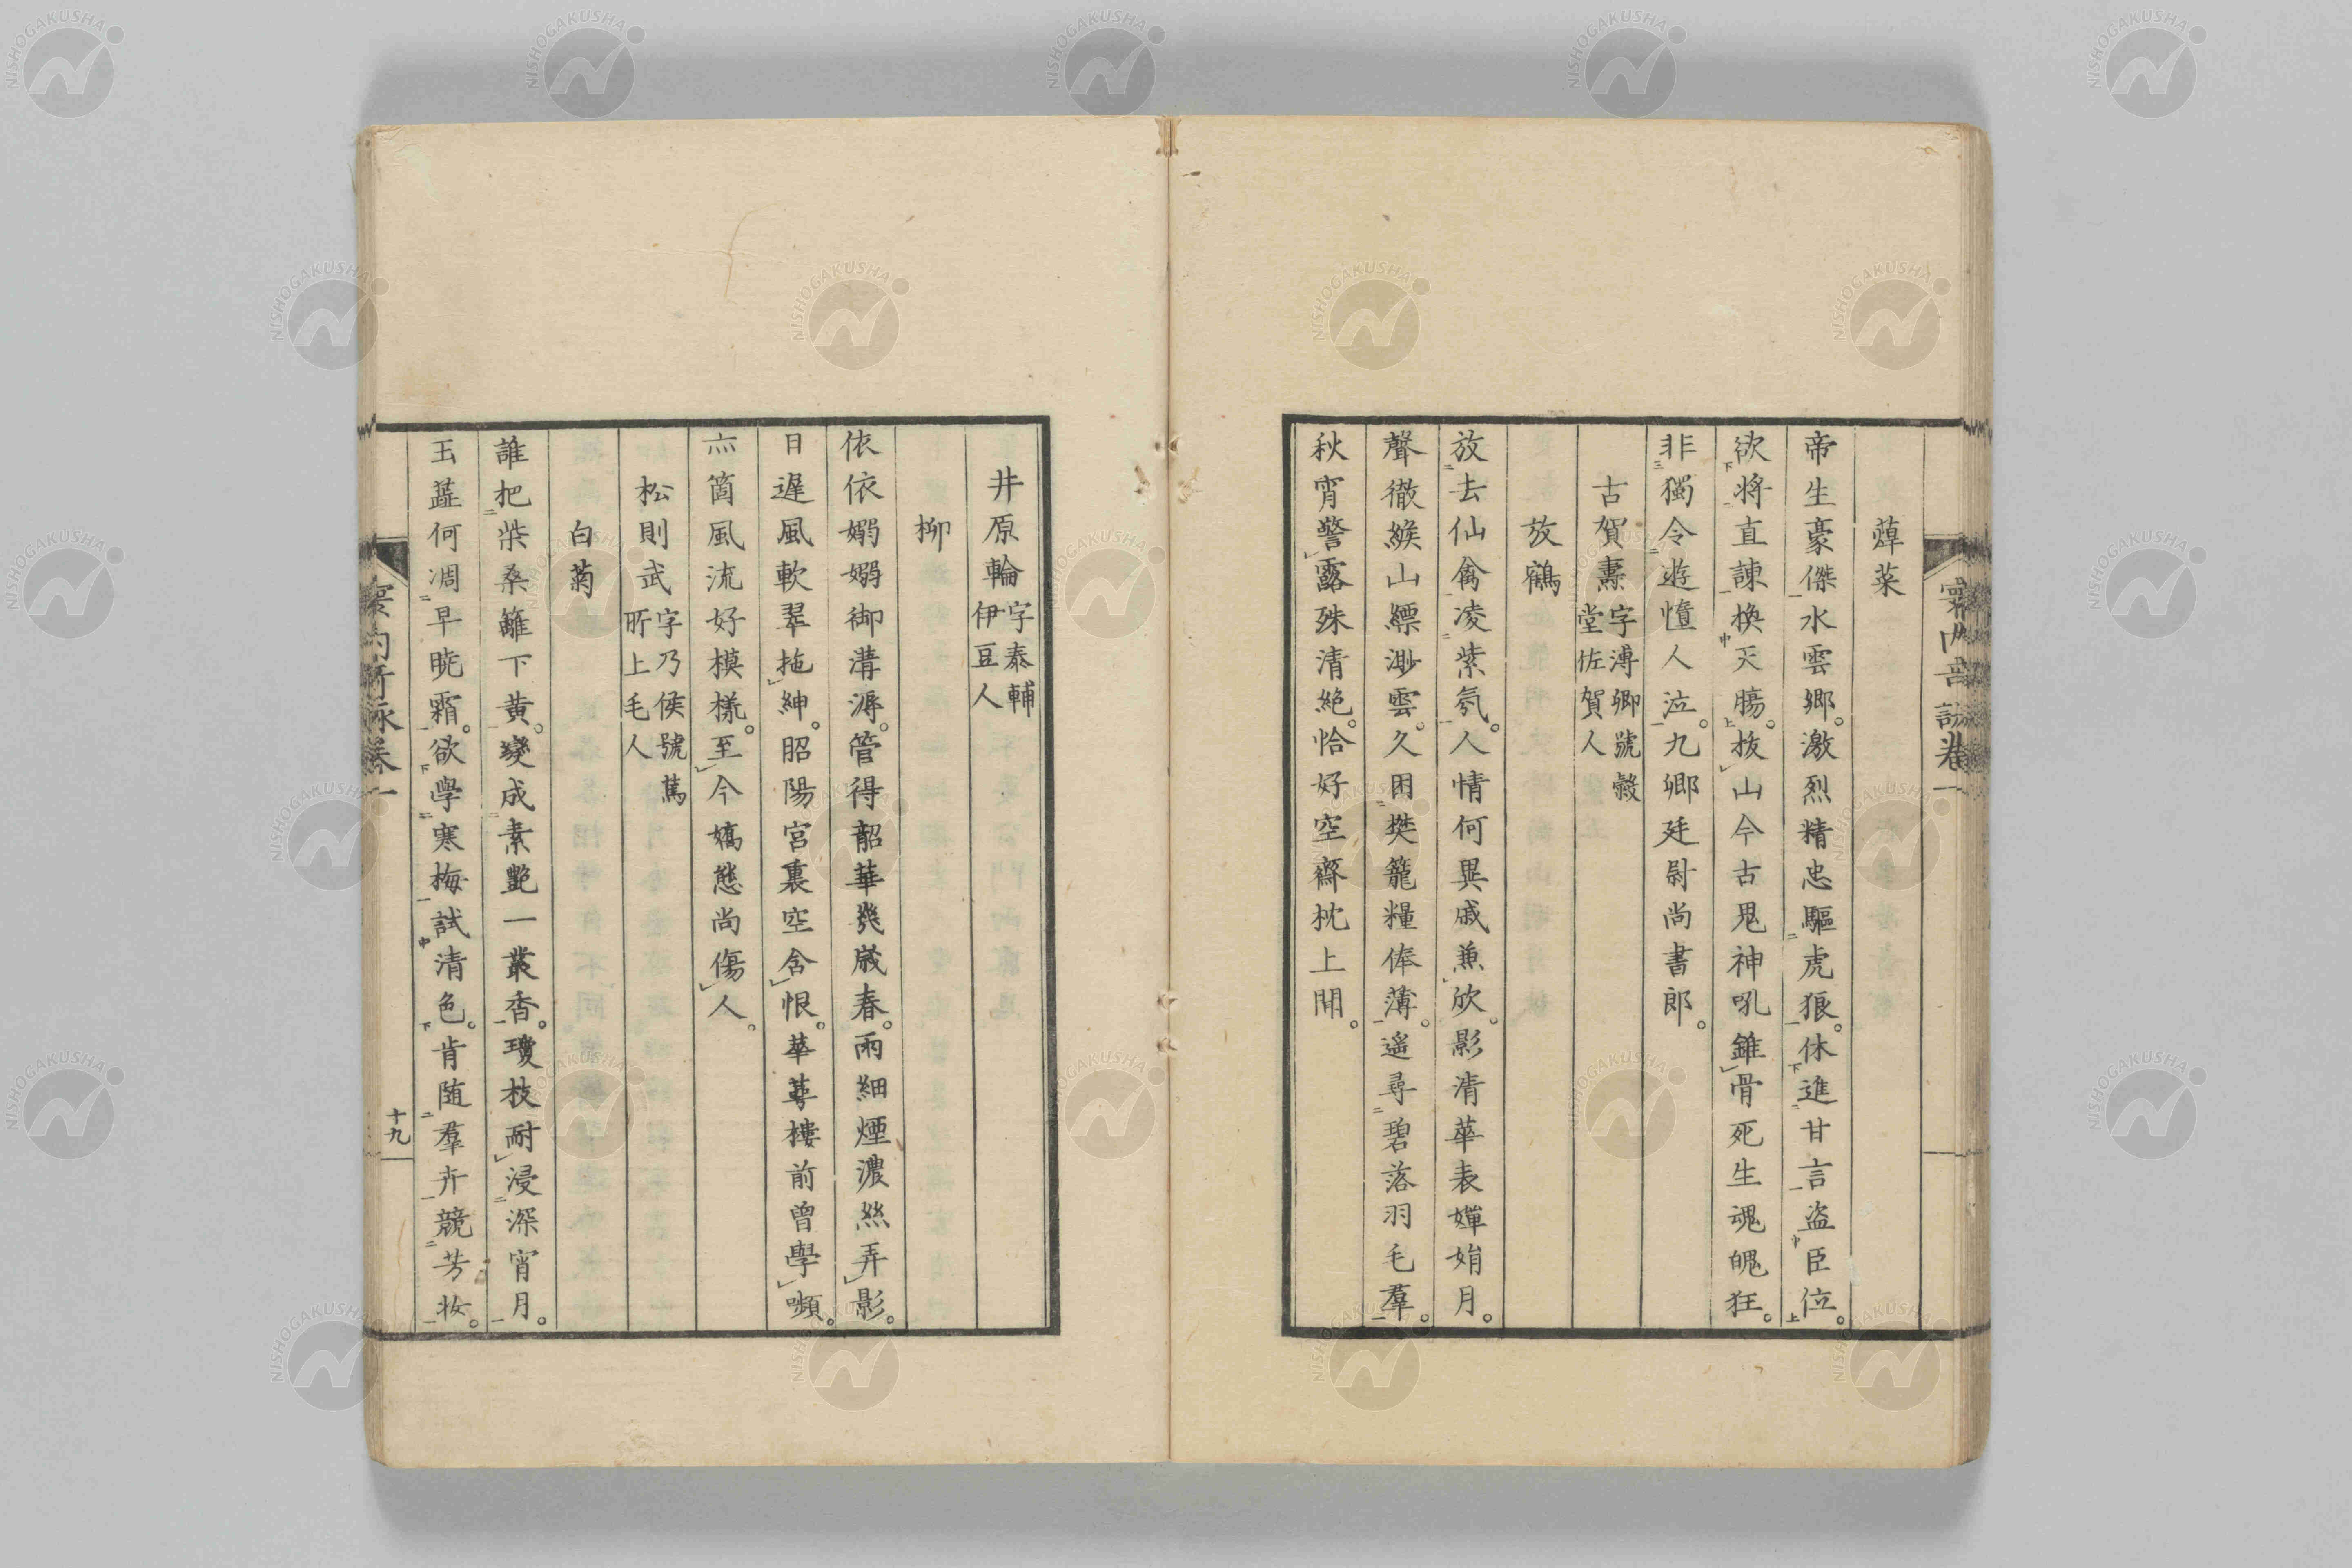 蔊菜
帝生豪傑水雲鄉。激烈精忠驅虎狼。休進甘言盜臣位。
欲將直諫換天腸。拔山今古鬼神吼。錐骨死生魂魄狂。
非獨令遊憻人泣。九卿廷尉尚書郎。
古賀燾字溥卿號穀堂佐賀人
放鶴
放去仙禽凌紫氛。人情何異戚兼欣。影清華表嬋娟月。
聲徹緱山縹渺雲。久困樊籠糧俸薄。遥尋碧落羽毛羣。
秋宵警露殊清絶。恰好空齋枕上聞。
井原輪字泰輔伊豆人
柳
依依嫋嫋御溝漘。管得韶華幾歲春。雨細煙濃絲弄影。
日遲風軟翠拖紳。昭陽宮裏空含恨。華萼樓前曾學嚬。
亦箇風流好模樣。至今嬌態尚傷人。
松則武字乃侯號蔿所上毛人
白菊
誰把柴桑籬下黄。變成素艷一叢香。瓊枝耐浸深宵月。
玉蕋何凋早曉霜。欲學寒梅試清色。肯随羣卉競芳妆。
十九
NISHOGAKUSHA